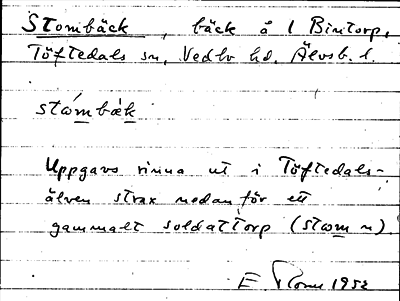 Stombäck, bäck å 1 Bintorp,
Töftedals sn, Vedbo hd, Älvsb. l.
stòmbæ̀k
Uppgavs rinna ut i Töftedals-
älven strax nedanför ett
gammalt soldattorp (stωm n).
E 1952